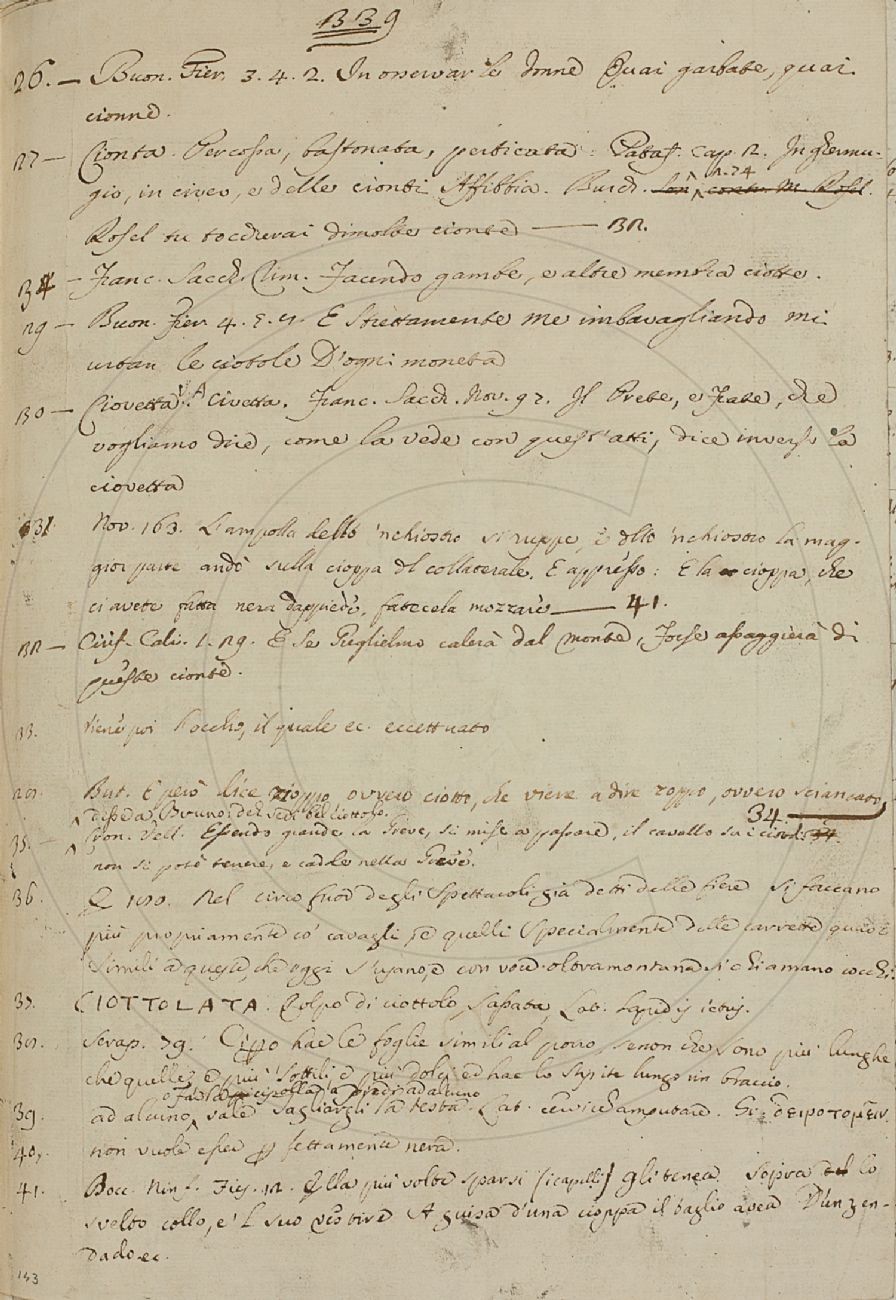 339
26. — Buon. Fier. 3. 4. 2. In osservar le donne Quai garbate, quai
cionne.
27 — Cionta. Percossa, bastonata, perticata. Pataf. cap. 2. In ghermu-
gio, in civeo, e delle cionte Affibbia. Burch. 2. 74
Rosel tu toccherai dimolte cionte — 32.
34 — Franc. Sacch. Rim. Facendo gambe, e altre membra ciotte.
29 — Buon. Fier. 4. E strettamente me imbavagliando mi
urtan le ciotole D'ogni moneta
30 — Ciovetta. V. A Civetta. Franc. Sacch. Nov. 97. Il Prete, e Frate, che
vogliamo dire, come la vede con quest'atti, dice inverso la
ciovetta
31. Nov. 163. L'ampolla dello 'nchiostro si ruppe, e dello 'nchiostro la mag-
gior parte andò sulla cioppa del collaterale. E appresso: E la cioppa, che
ci avete fatta nera dappiede, fatecela mozzare — 41.
32 — Ciriff. Calv. 1. 29. E se Guglielmo calerà dal monte, Forse assaggierà di
queste cionte.
33. Viene poi Rocchio, il quale ec. eccettuato
But. E però dice zoppo, ovvero ciotto, che viene a dire zoppo, ovvero sciancato,
34 —
35. — Cron. Vell. Essendo grande la Pieve, si mise a passare, il cavallo
non si potè tenere, e cadde nella Pieve.
36. E 120. Nel circo fuor degli Spettacoli già detti delle fiere si faceano
più propriamente co' cavagli, e quelli specialmente delle carrette quasi
simili a queste, che oggi s'usano, e con voce oltramontana si chiamano cocchi.
37. CIOTTOLATA. Colpo di ciottolo, Sassata, Lat. lapidis ictus.
Serap. 79. Cippo hae le foglie simili al porro, senon che sono più lunghe
che quelle, e più sottili, e più dolci, ed hae lo stipite lungo un braccio.
39. ad alcuno, vale Tagliargli la testa. Lat. cervicem amputare. Gr. δειροτομεῖν
40. non vuole esser perfettamente nera.
41. Bocc. Ninf. Fies. 12. Ella più volte sparsi (i capelli) gli tenea sopra lo
svelto collo, e 'l suo vestire A guisa d'una cioppa il taglio avea D'un zen-
dado ec.
143